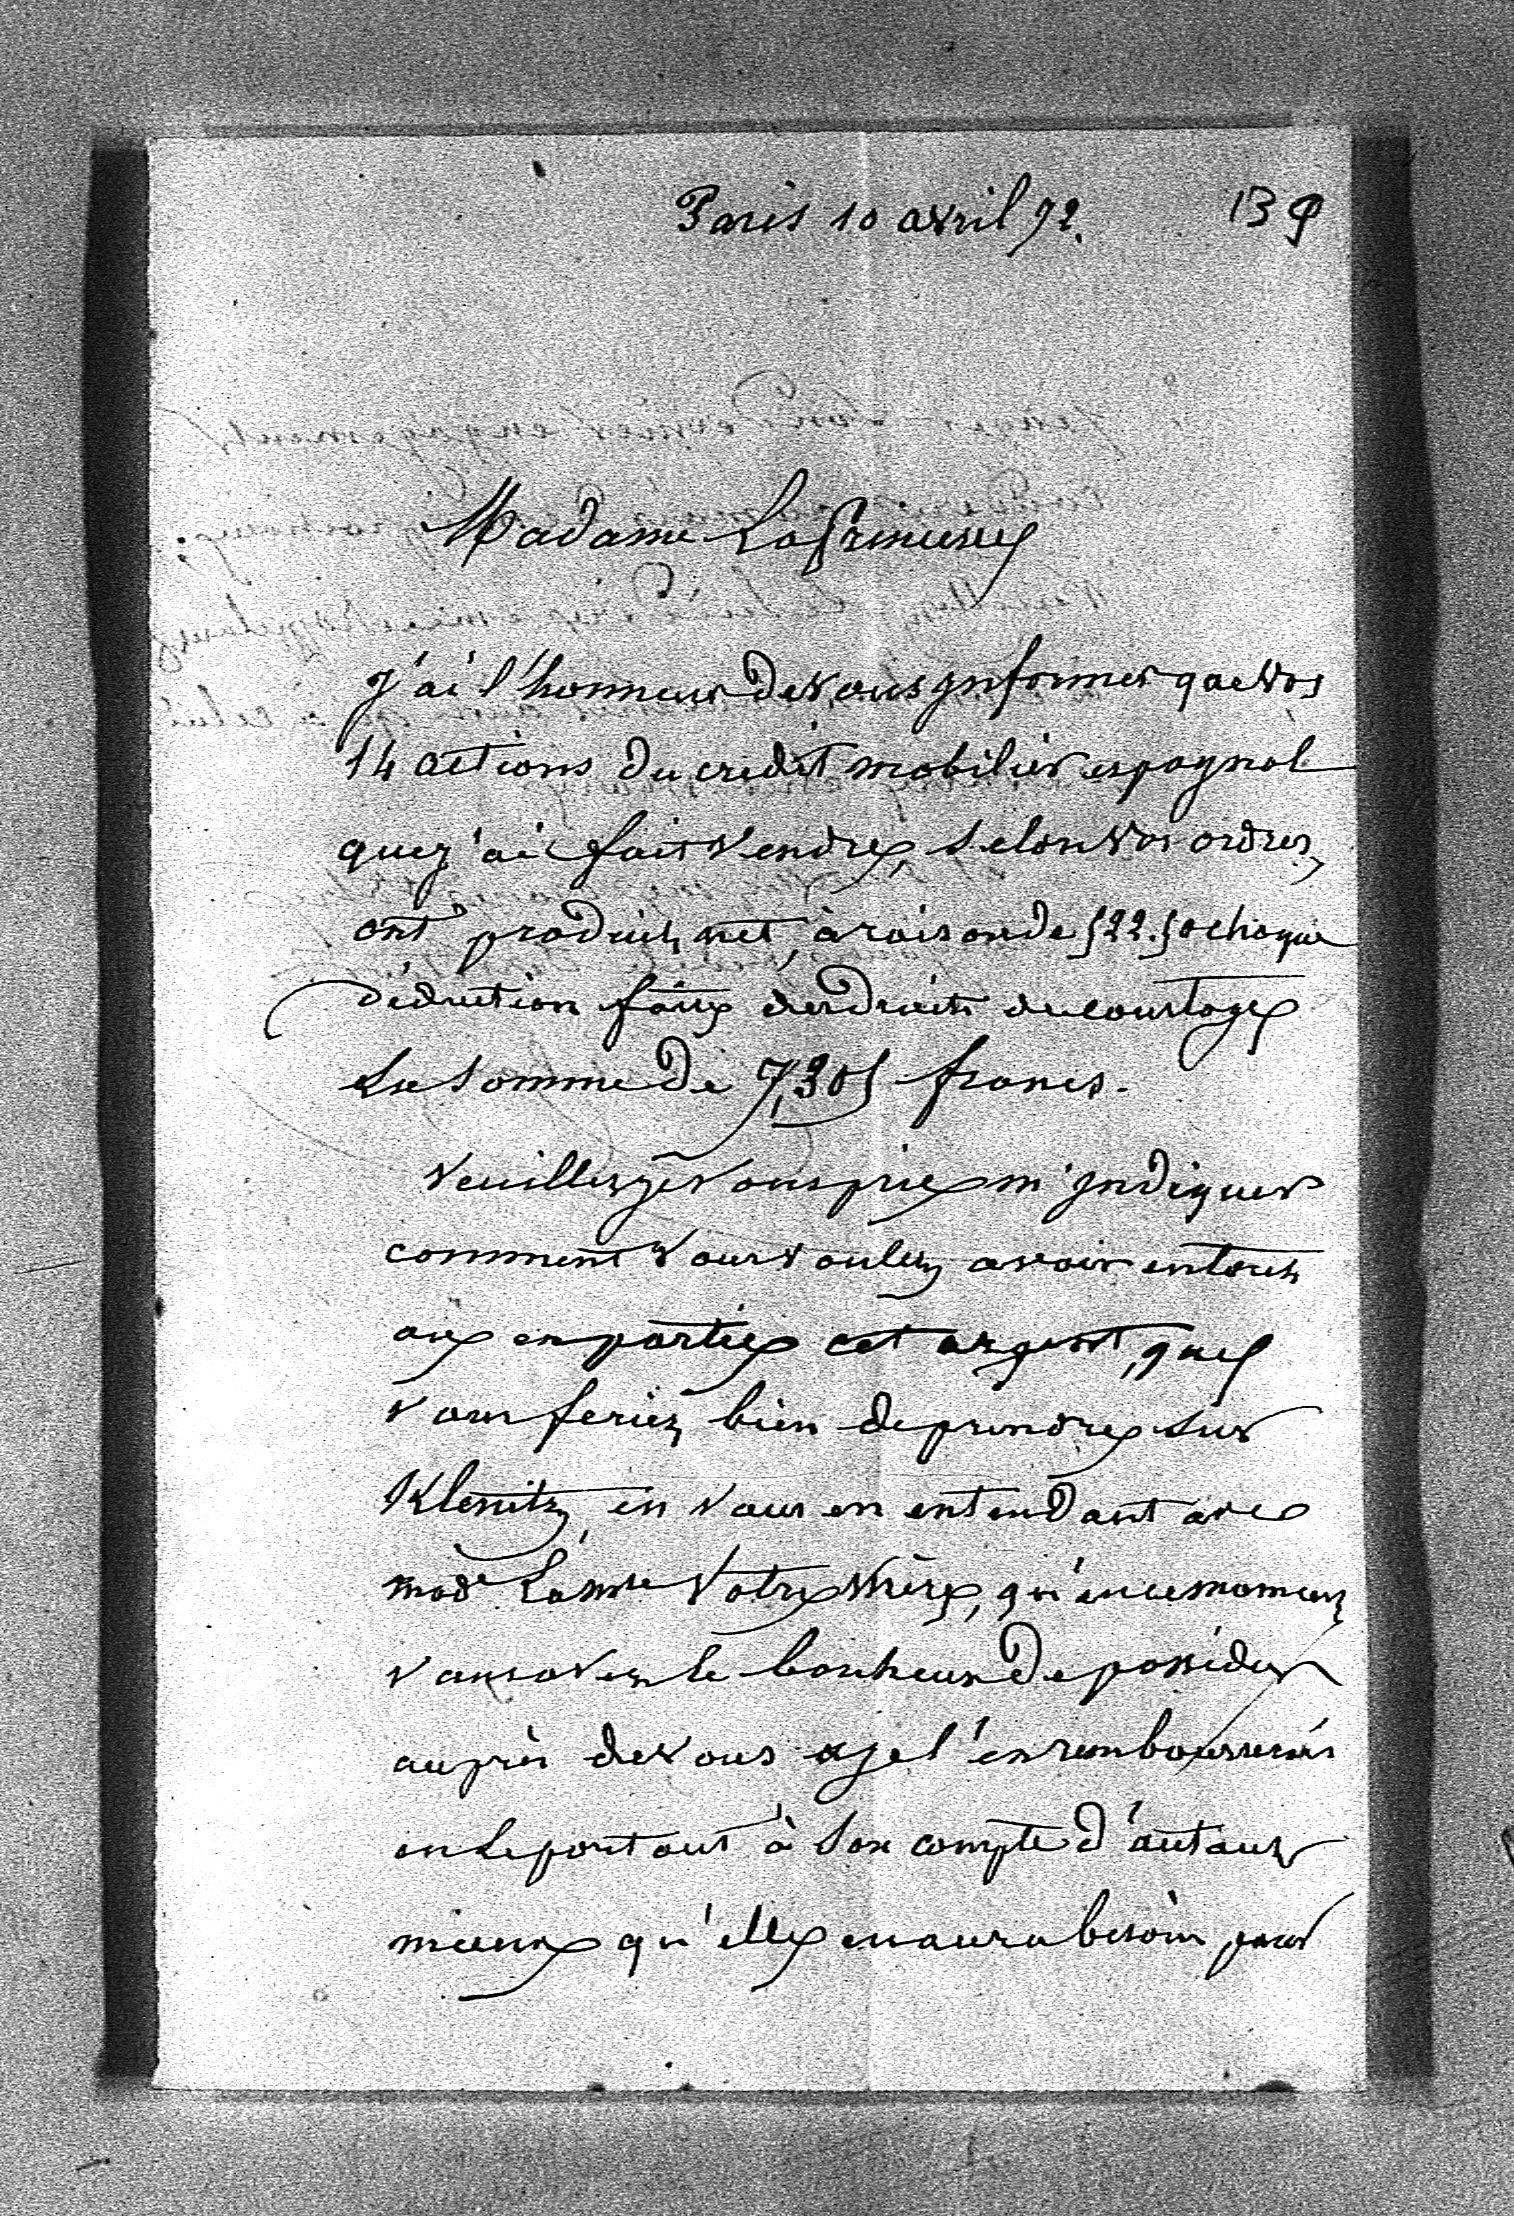 Paris 10 avril 72.
Madame La Princesse
J'ai l'honneur de vous informer que vos
14 actions du credit mobilier espagnol
que j'ai fait vendre, selon vos ordres,
ont produit, net, à raison de 522.50 chaque
déduction faite des droits de courtage
La somme de 7,305 francs.
Veuillez je vous prie m'indiquer
comment vous voulez avoir en tout
ou en partie cet argent, que
vous feriez bien de prendre sur
en vous en entendant avec
Made votre mère, qu'en ce moment
vous avez le bonheur de posséder
auprès de vous & je l'en rembourserais
en le portant à son compte d'autant
mieux qu'elle en aura besoin pour